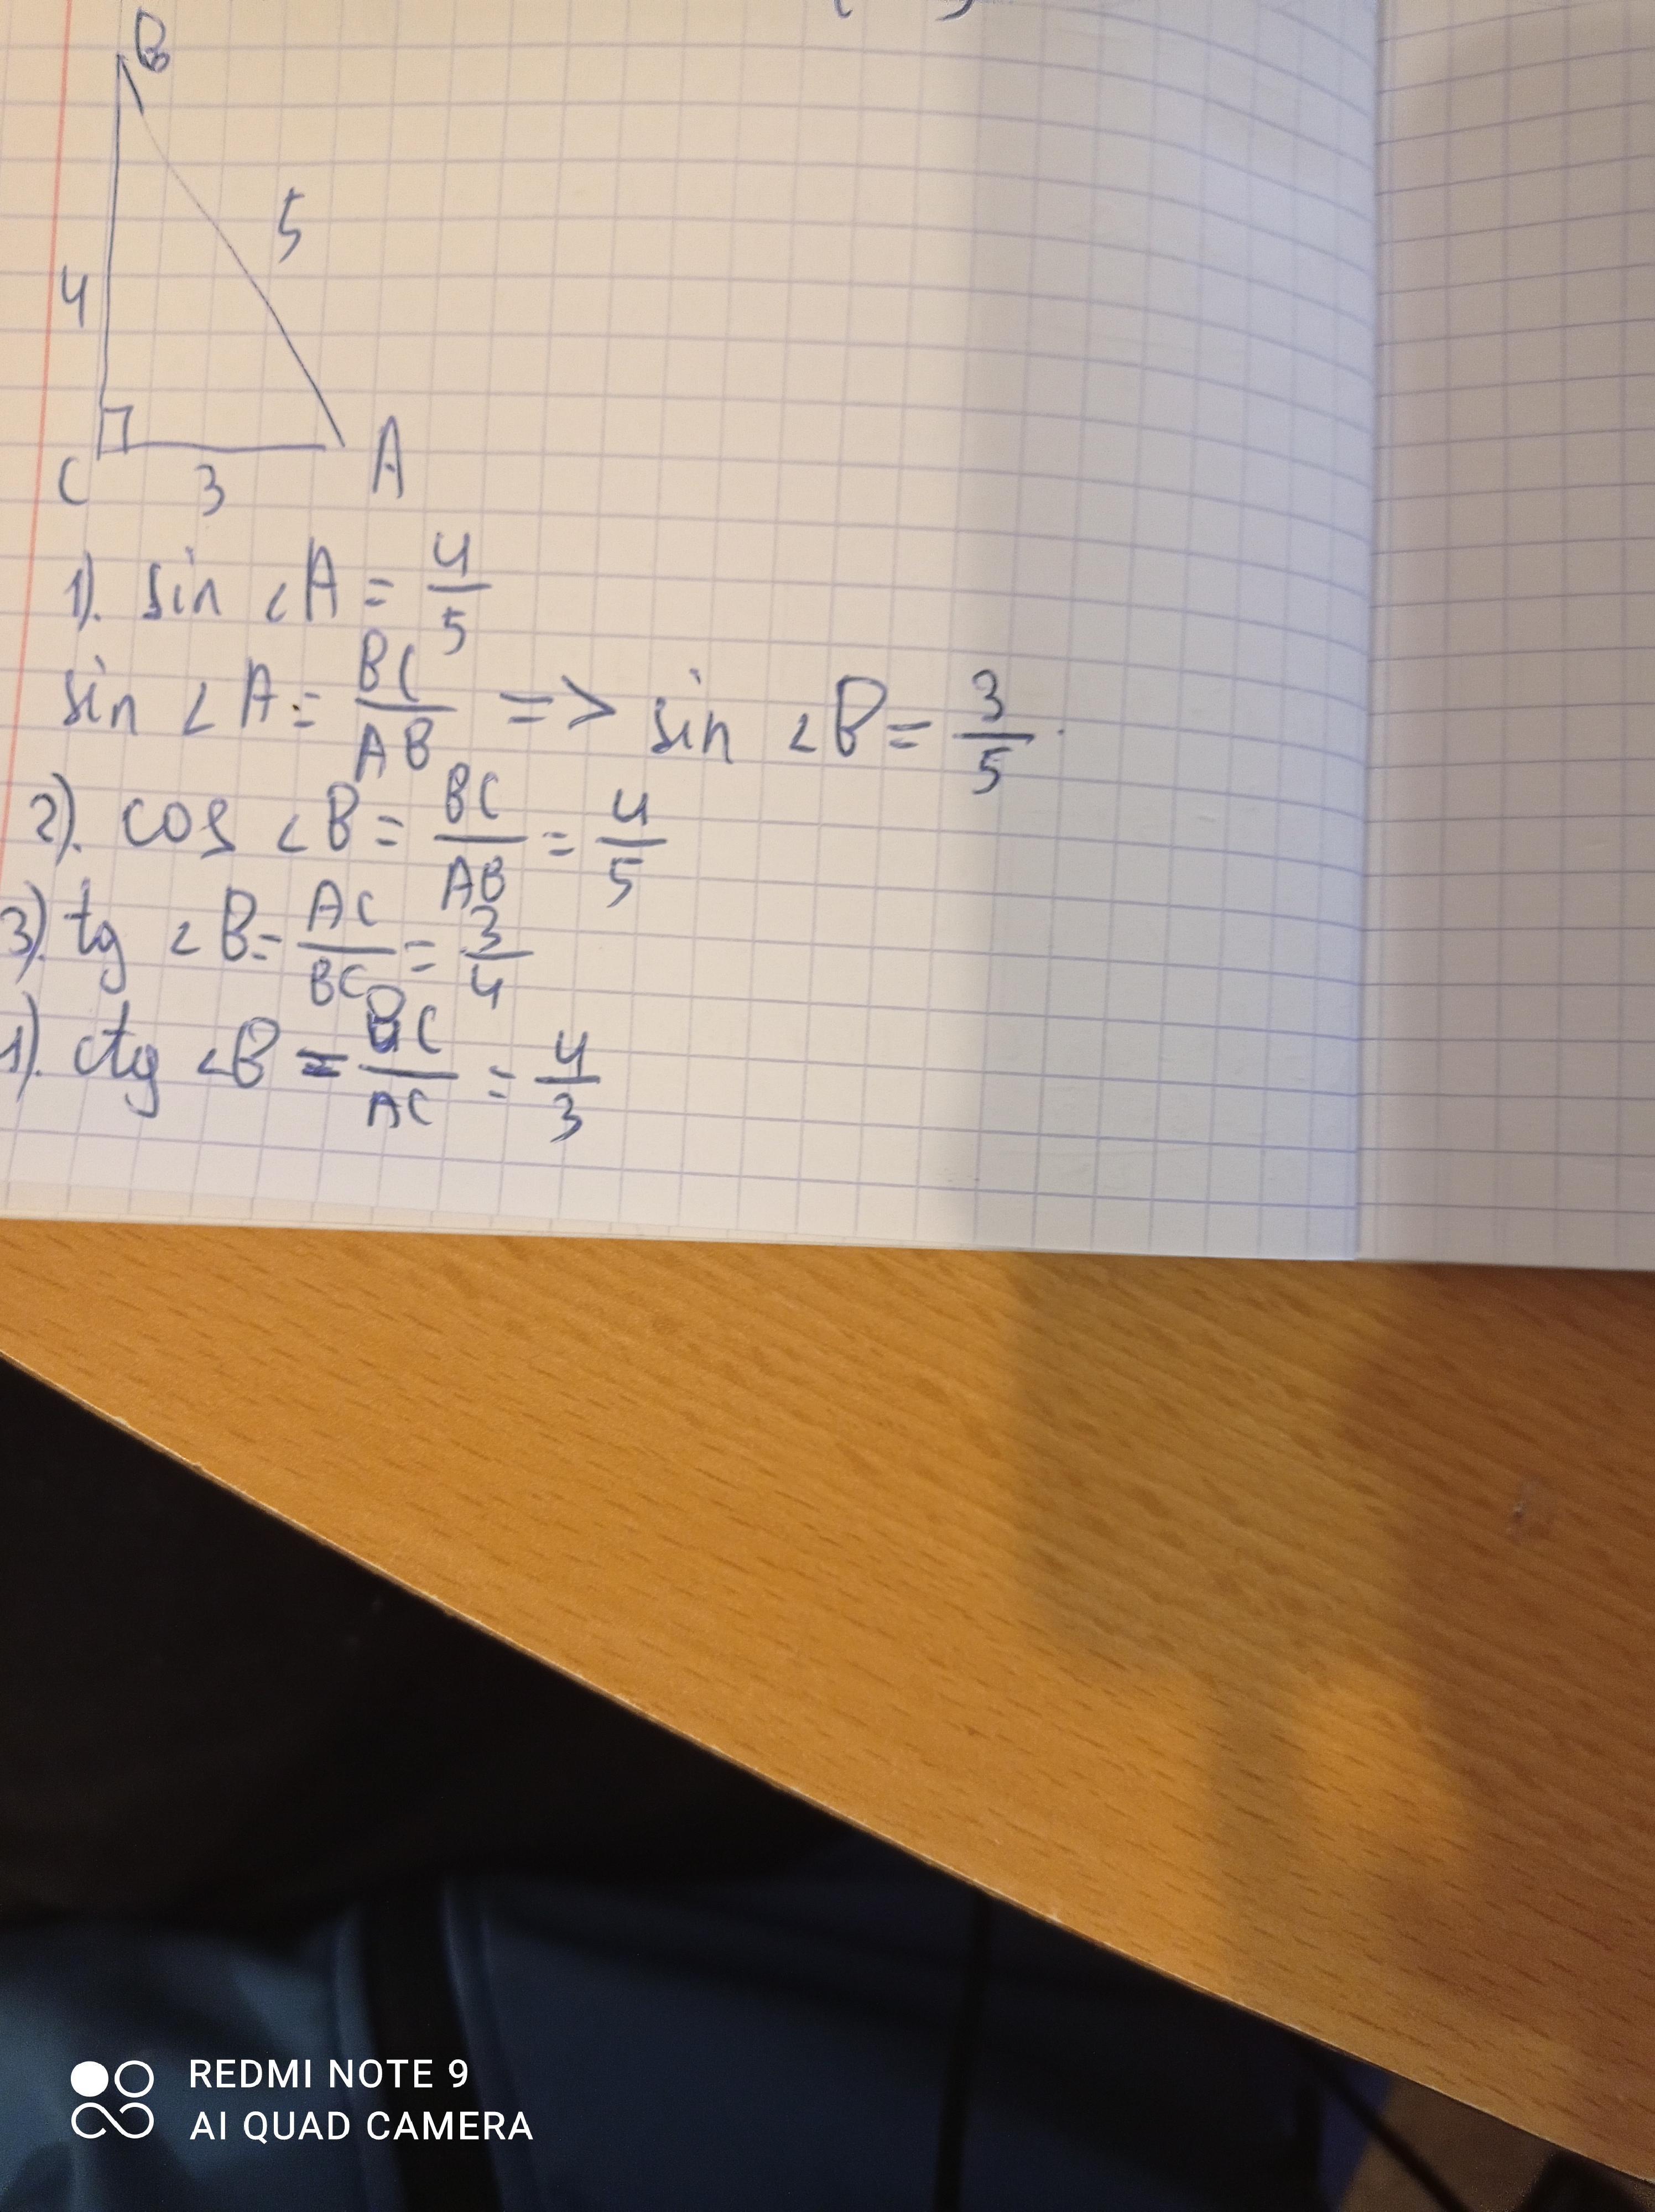 B
5
4
C 3 A
1). sin ∠A = 4/5
sin ∠A = BC/AB => sin ∠B = 3/5.
2). cos ∠B = BC/AB = 4/5
3). tg ∠B = AC/BC = 3/4
). ctg ∠B = BC/AC = 4/3
REDMI NOTE 9
AI QUAD CAMERA